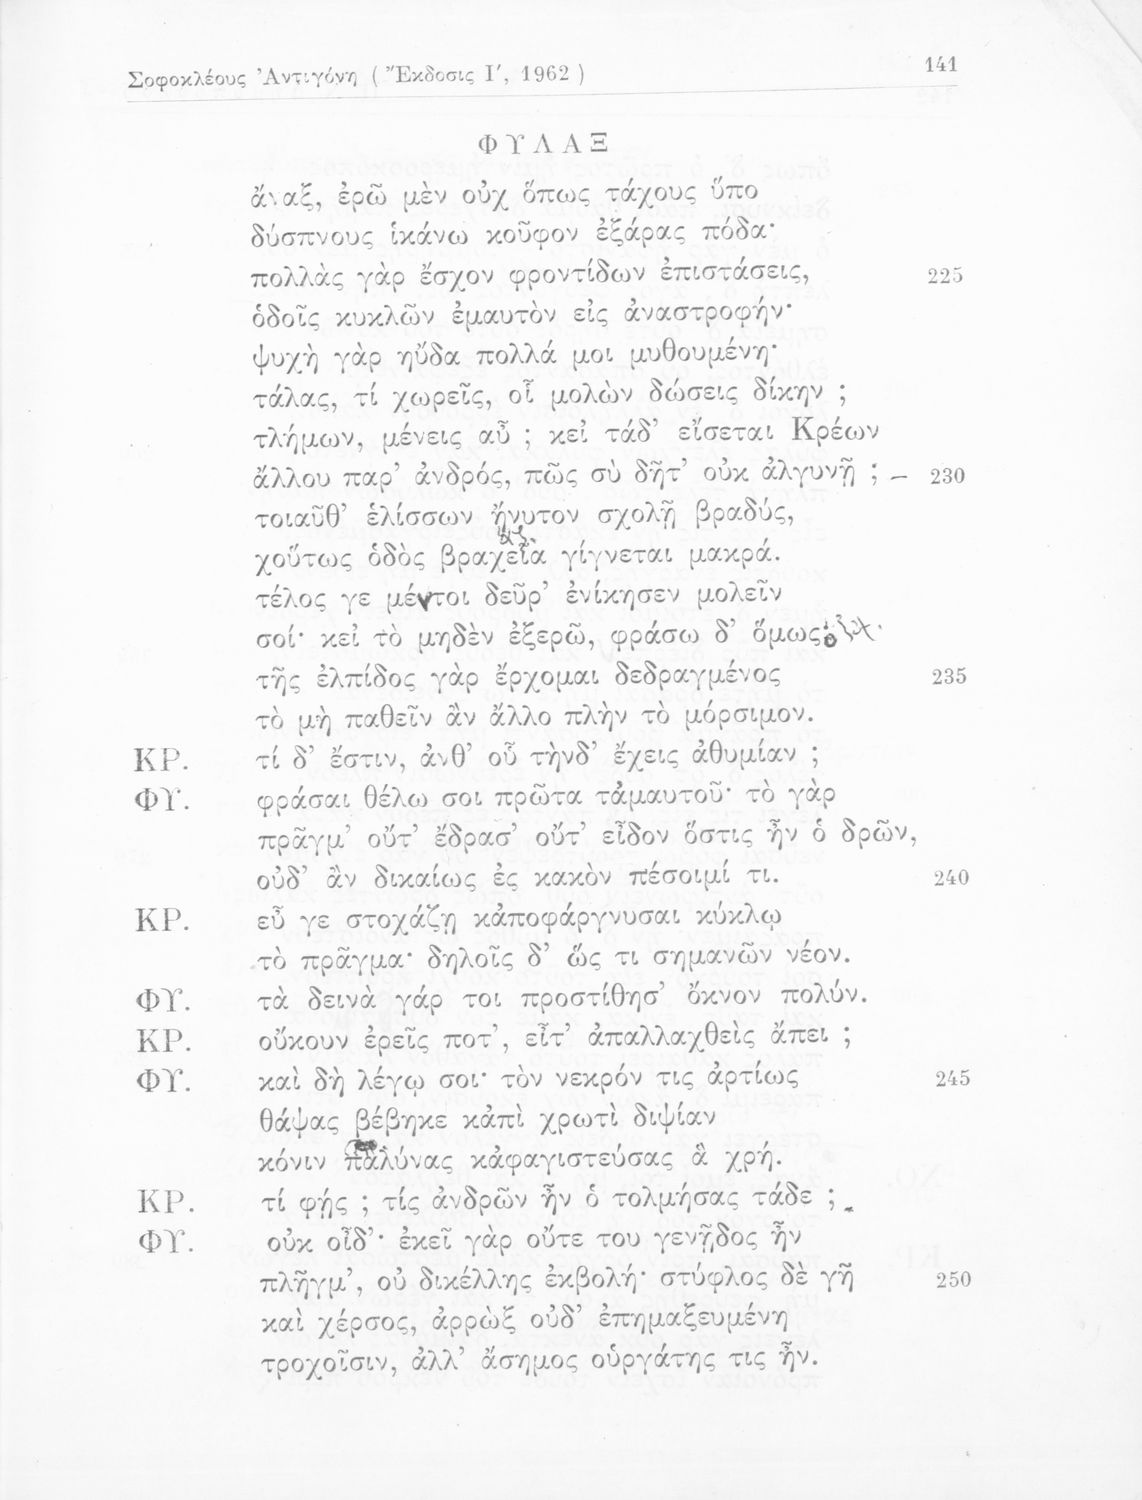 Σοφοκλέους Ἀντιγόνη ( Ἔκδοσις Ι΄, 1962 ) 141
ΦΥΛΑΞ
ἄναξ, ἐρῶ μὲν οὐχ ὅπως τάχους ὕπο
δύσπνους ἱκάνω κοῦφον ἐξάρας πόδα·
πολλὰς γὰρ ἔσχον φροντίδων ἐπιστάσεις, 225
ὁδοῖς κυκλῶν ἐμαυτὸν εἰς ἀναστροφήν·
ψυχὴ γὰρ ηὔδα πολλά μοι μυθουμένη·
τάλας, τί χωρεῖς, οἷ μολὼν δώσεις δίκην ;
τλήμων, μένεις αὖ ; κεἰ τάδ’ εἴσεται Κρέων
ἄλλου παρ’ ἀνδρός, πῶς σὺ δῆτ’ οὐκ ἀλγυνῇ ; – 230
τοιαῦθ’ ἑλίσσων ἤνυτον σχολῇ βραδύς,
χοὕτως ὁδὸς βραχεῖα γίγνεται μακρά.
τέλος γε μέντοι δεῦρ’ ἐνίκησεν μολεῖν
σοί· κεἰ τὸ μηδὲν ἐξερῶ, φράσω δ’ ὅμως
τῆς ἐλπίδος γὰρ ἔρχομαι δεδραγμένος 235
τὸ μὴ παθεῖν ἂν ἄλλο πλὴν τὸ μόρσιμον.
ΚΡ. τί δ’ ἔστιν, ἀνθ’ οὗ τὴνδ’ ἔχεις ἀθυμίαν ;
ΦΥ. φράσαι θέλω σοι πρῶτα τἀμαυτοῦ· τὸ γὰρ
πρᾶγμ’ οὔτ’ ἔδρασ’ οὔτ’ εἶδον ὅστις ἦν ὁ δρῶν,
οὐδ’ ἂν δικαίως ἐς κακὸν πέσοιμί τι. 240
ΚΡ. εὖ γε στοχάζῃ κἀποφάργνυσαι κύκλῳ
τὸ πρᾶγμα· δηλοῖς δ’ ὥς τι σημανῶν νέον.
ΦΥ. τὰ δεινὰ γάρ τοι προστίθησ’ ὄκνον πολύν.
ΚΡ. οὔκουν ἐρεῖς ποτ’, εἶτ’ ἀπαλλαχθεὶς ἄπει ;
ΦΥ. καὶ δὴ λέγω σοι· τὸν νεκρόν τις ἀρτίως 245
θάψας βέβηκε κἀπὶ χρωτὶ διψίαν
κόνιν παλύνας κἀφαγιστεύσας ἃ χρή.
ΚΡ. τί φῄς ; τίς ἀνδρῶν ἦν ὁ τολμήσας τάδε ;
ΦΥ. οὐκ οἶδ’· ἐκεῖ γὰρ οὔτε του γενῇδος ἦν
πλῆγμ’, οὐ δικέλλης ἐκβολή· στύφλος δὲ γῆ 250
καὶ χέρσος, ἀρρὼξ οὐδ’ ἐπημαξευμένη
τροχοῖσιν, ἀλλ’ ἄσημος οὑργάτης τις ἦν.